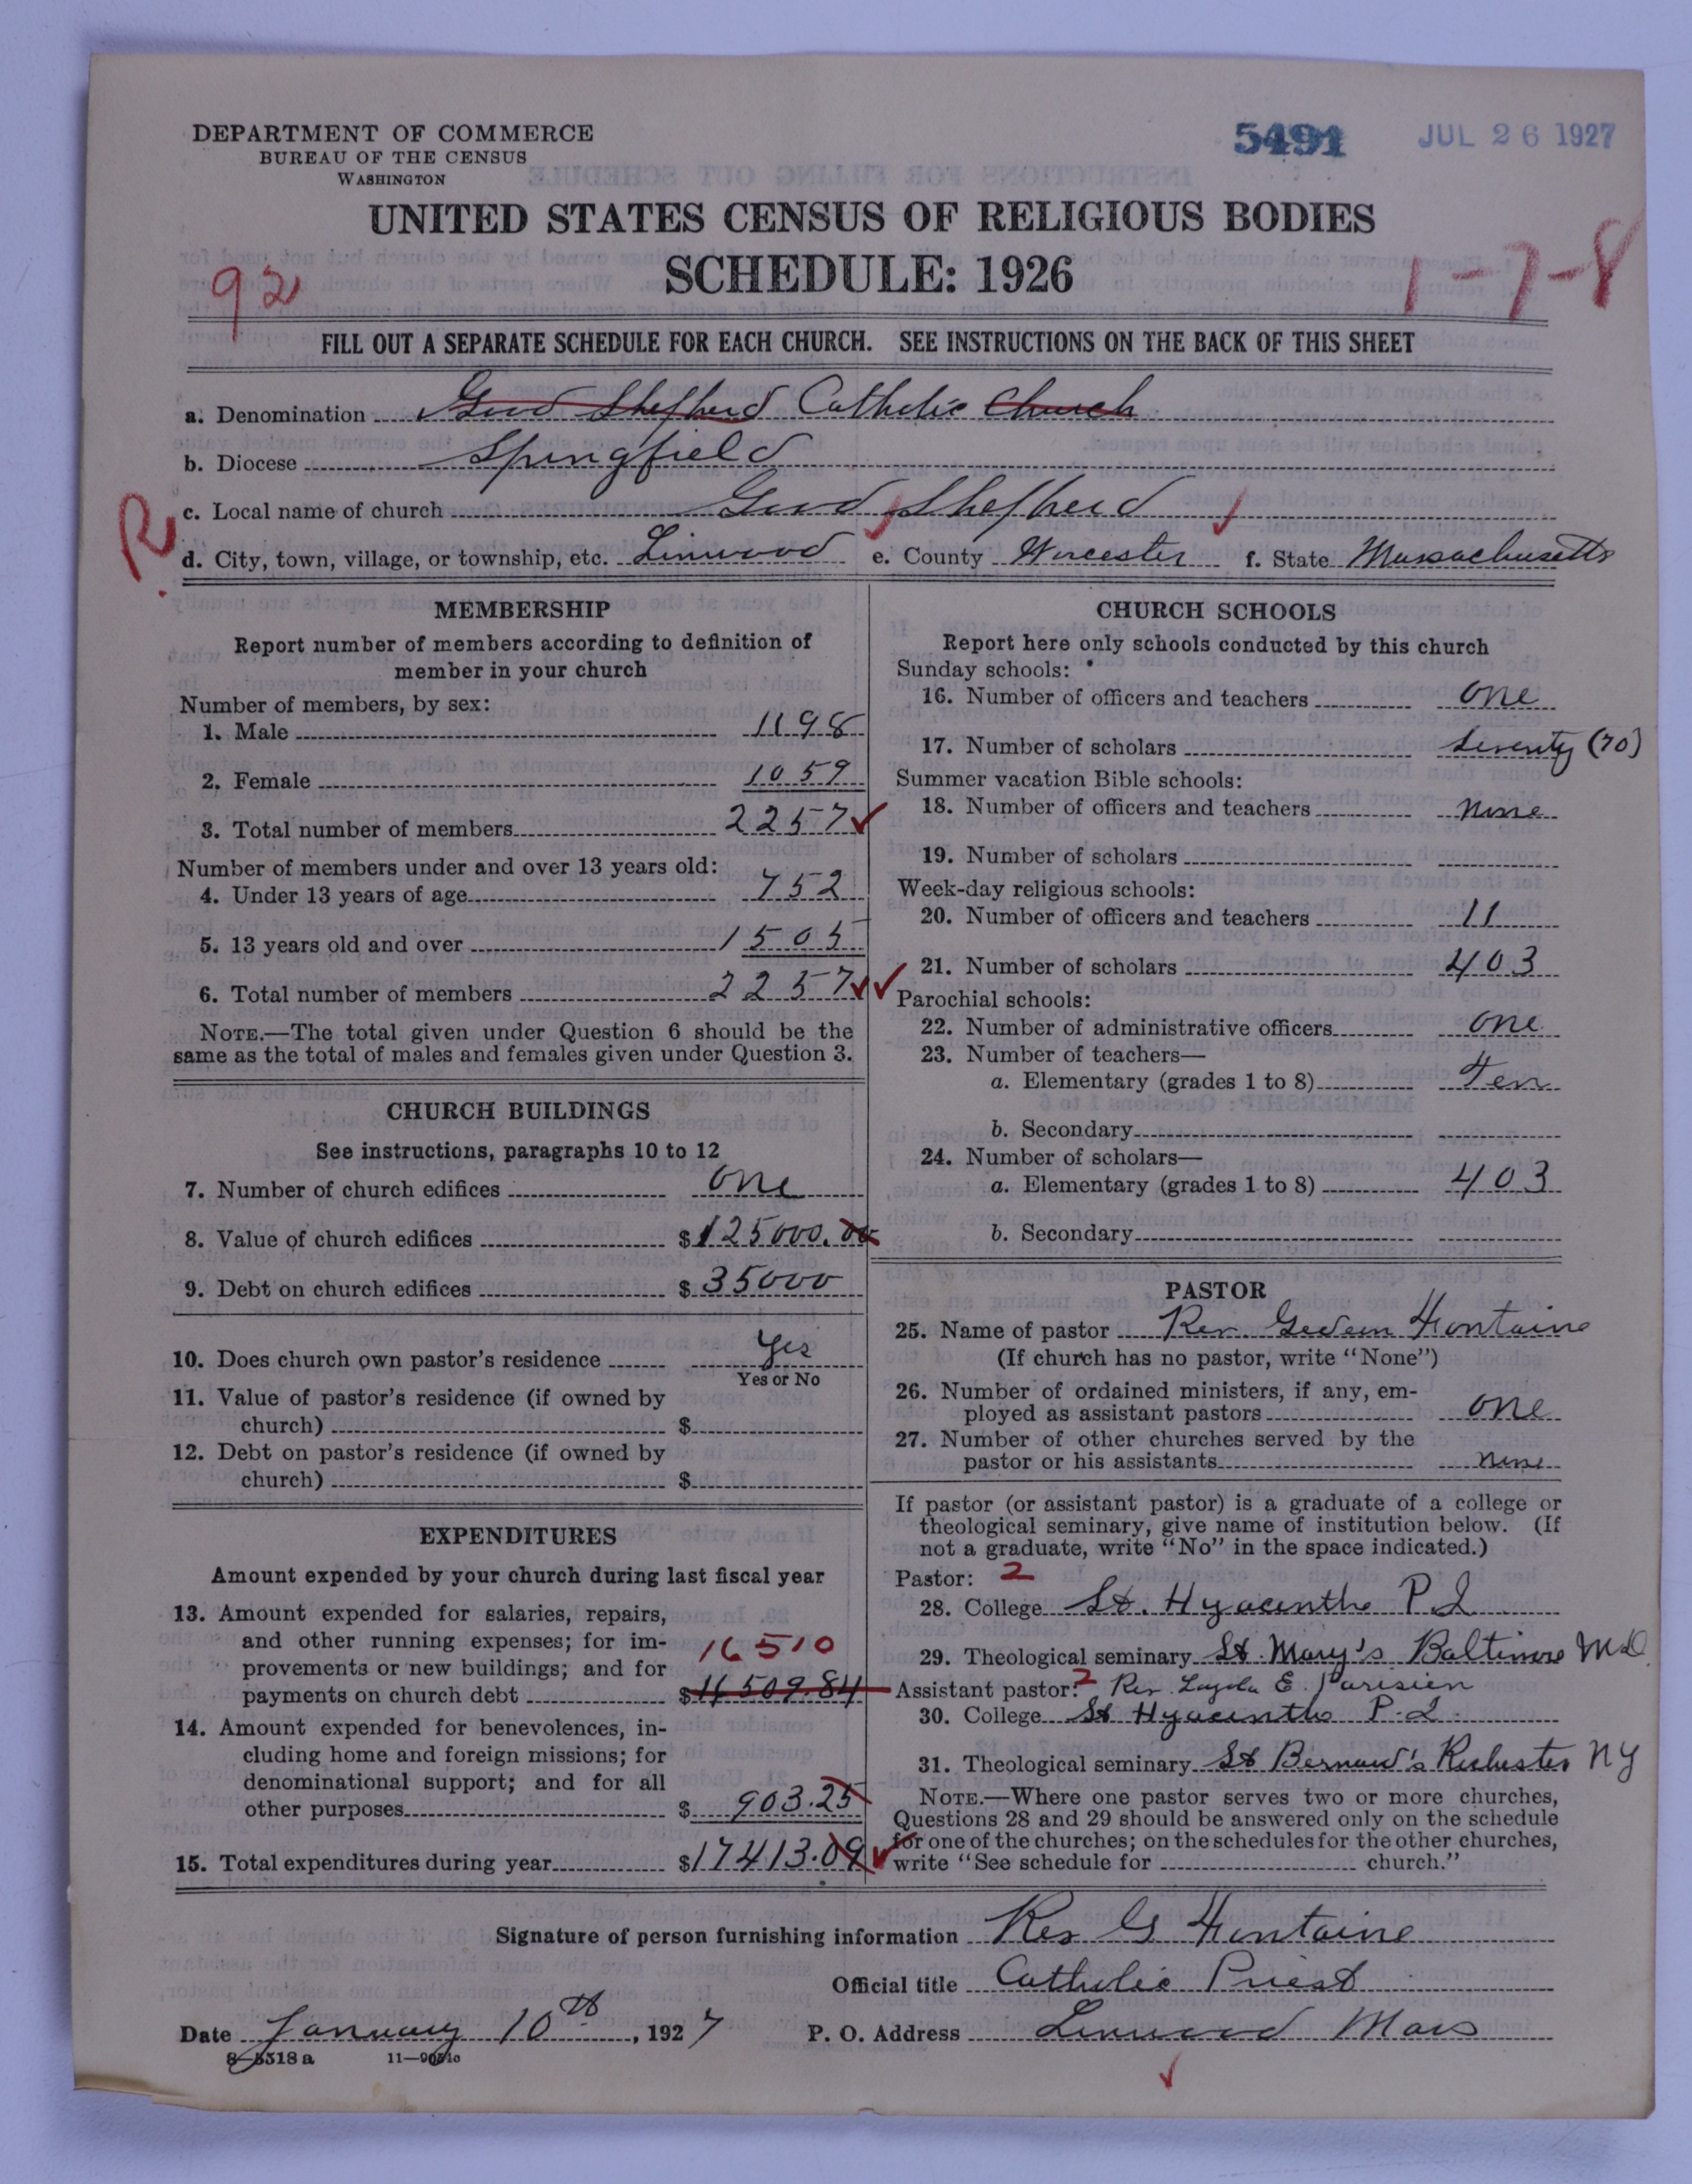 DEPARTMENT OF COMMERCE
BUREAU OF THE CENSUS
WASHINGTON
5491 JUL 26 1927
UNITED STATES CENSUS OF RELIGIOUS BODIES
SCHEDULE: 1926
92
1-7-8
FILL OUT A SEPARATE SCHEDULE FOR EACH CHURCH. SEE INSTRUCTIONS ON THE BACK OF THIS SHEET
a. Denomination Good Shepherd Catholic Church
b. Diocese Springfield
R
c. Local name of church Good Shepherd
d. City, town, village, or township, etc. Linwood e. County Worcester f. State Massachusetts
MEMBERSHIP
Report number of members according to definition of
member in your church
Number of members, by sex:
1. Male 1198
2. Female 1059
3. Total number of members 2257
Number of members under and over 13 years old:
4. Under 13 years of age 752
5. 13 years old and over 1505
6. Total number of members 2257
NOTE.—The total given under Question 6 should be the
same as the total of males and females given under Question 3.
CHURCH BUILDINGS
See instructions, paragraphs 10 to 12
7. Number of church edifices one
8. Value of church edifices $125000.00
9. Debt on church edifices $35000
10. Does church own pastor's residence Yes
Yes or No
11. Value of pastor's residence (if owned by
church) $
12. Debt on pastor's residence (if owned by
church) $
EXPENDITURES
Amount expended by your church during last fiscal year
13. Amount expended for salaries, repairs,
and other running expenses; for im-
provements or new buildings; and for
16510
payments on church debt $16509.84
14. Amount expended for benevolences, in-
cluding home and foreign missions; for
denominational support; and for all
other purposes $903.25
15. Total expenditures during year $17413.09
CHURCH SCHOOLS
Report here only schools conducted by this church
Sunday schools:
16. Number of officers and teachers one
17. Number of scholars seventy (70)
Summer vacation Bible schools:
18. Number of officers and teachers none
19. Number of scholars
Week-day religious schools:
20. Number of officers and teachers 11
21. Number of scholars 403
Parochial schools:
22. Number of administrative officers one
23. Number of teachers—
a. Elementary (grades 1 to 8) Ten
b. Secondary
24. Number of scholars—
a. Elementary (grades 1 to 8) 403
b. Secondary
PASTOR
25. Name of pastor Rev Gedeon Fontaine
(If church has no pastor, write "None")
26. Number of ordained ministers, if any, em-
ployed as assistant pastors one
27. Number of other churches served by the
pastor or his assistants none
If pastor (or assistant pastor) is a graduate of a college or
theological seminary, give name of institution below. (If
not a graduate, write "No" in the space indicated.)
Pastor: 2
28. College St. Hyacinthe P Q
29. Theological seminary St Mary's Baltimore MD
Assistant pastor: 2 Rev. Loyola E. Parisien
30. College St Hyacinthe P.Q.
31. Theological seminary St Bernard's Rochester NY
NOTE.—Where one pastor serves two or more churches,
Questions 28 and 29 should be answered only on the schedule
for one of the churches; on the schedules for the other churches,
write "See schedule for church."
Signature of person furnishing information Rev G Fontaine
Official title Catholic Priest
Date January 10th, 1927 P. O. Address Linwood Mass
8-5318 a